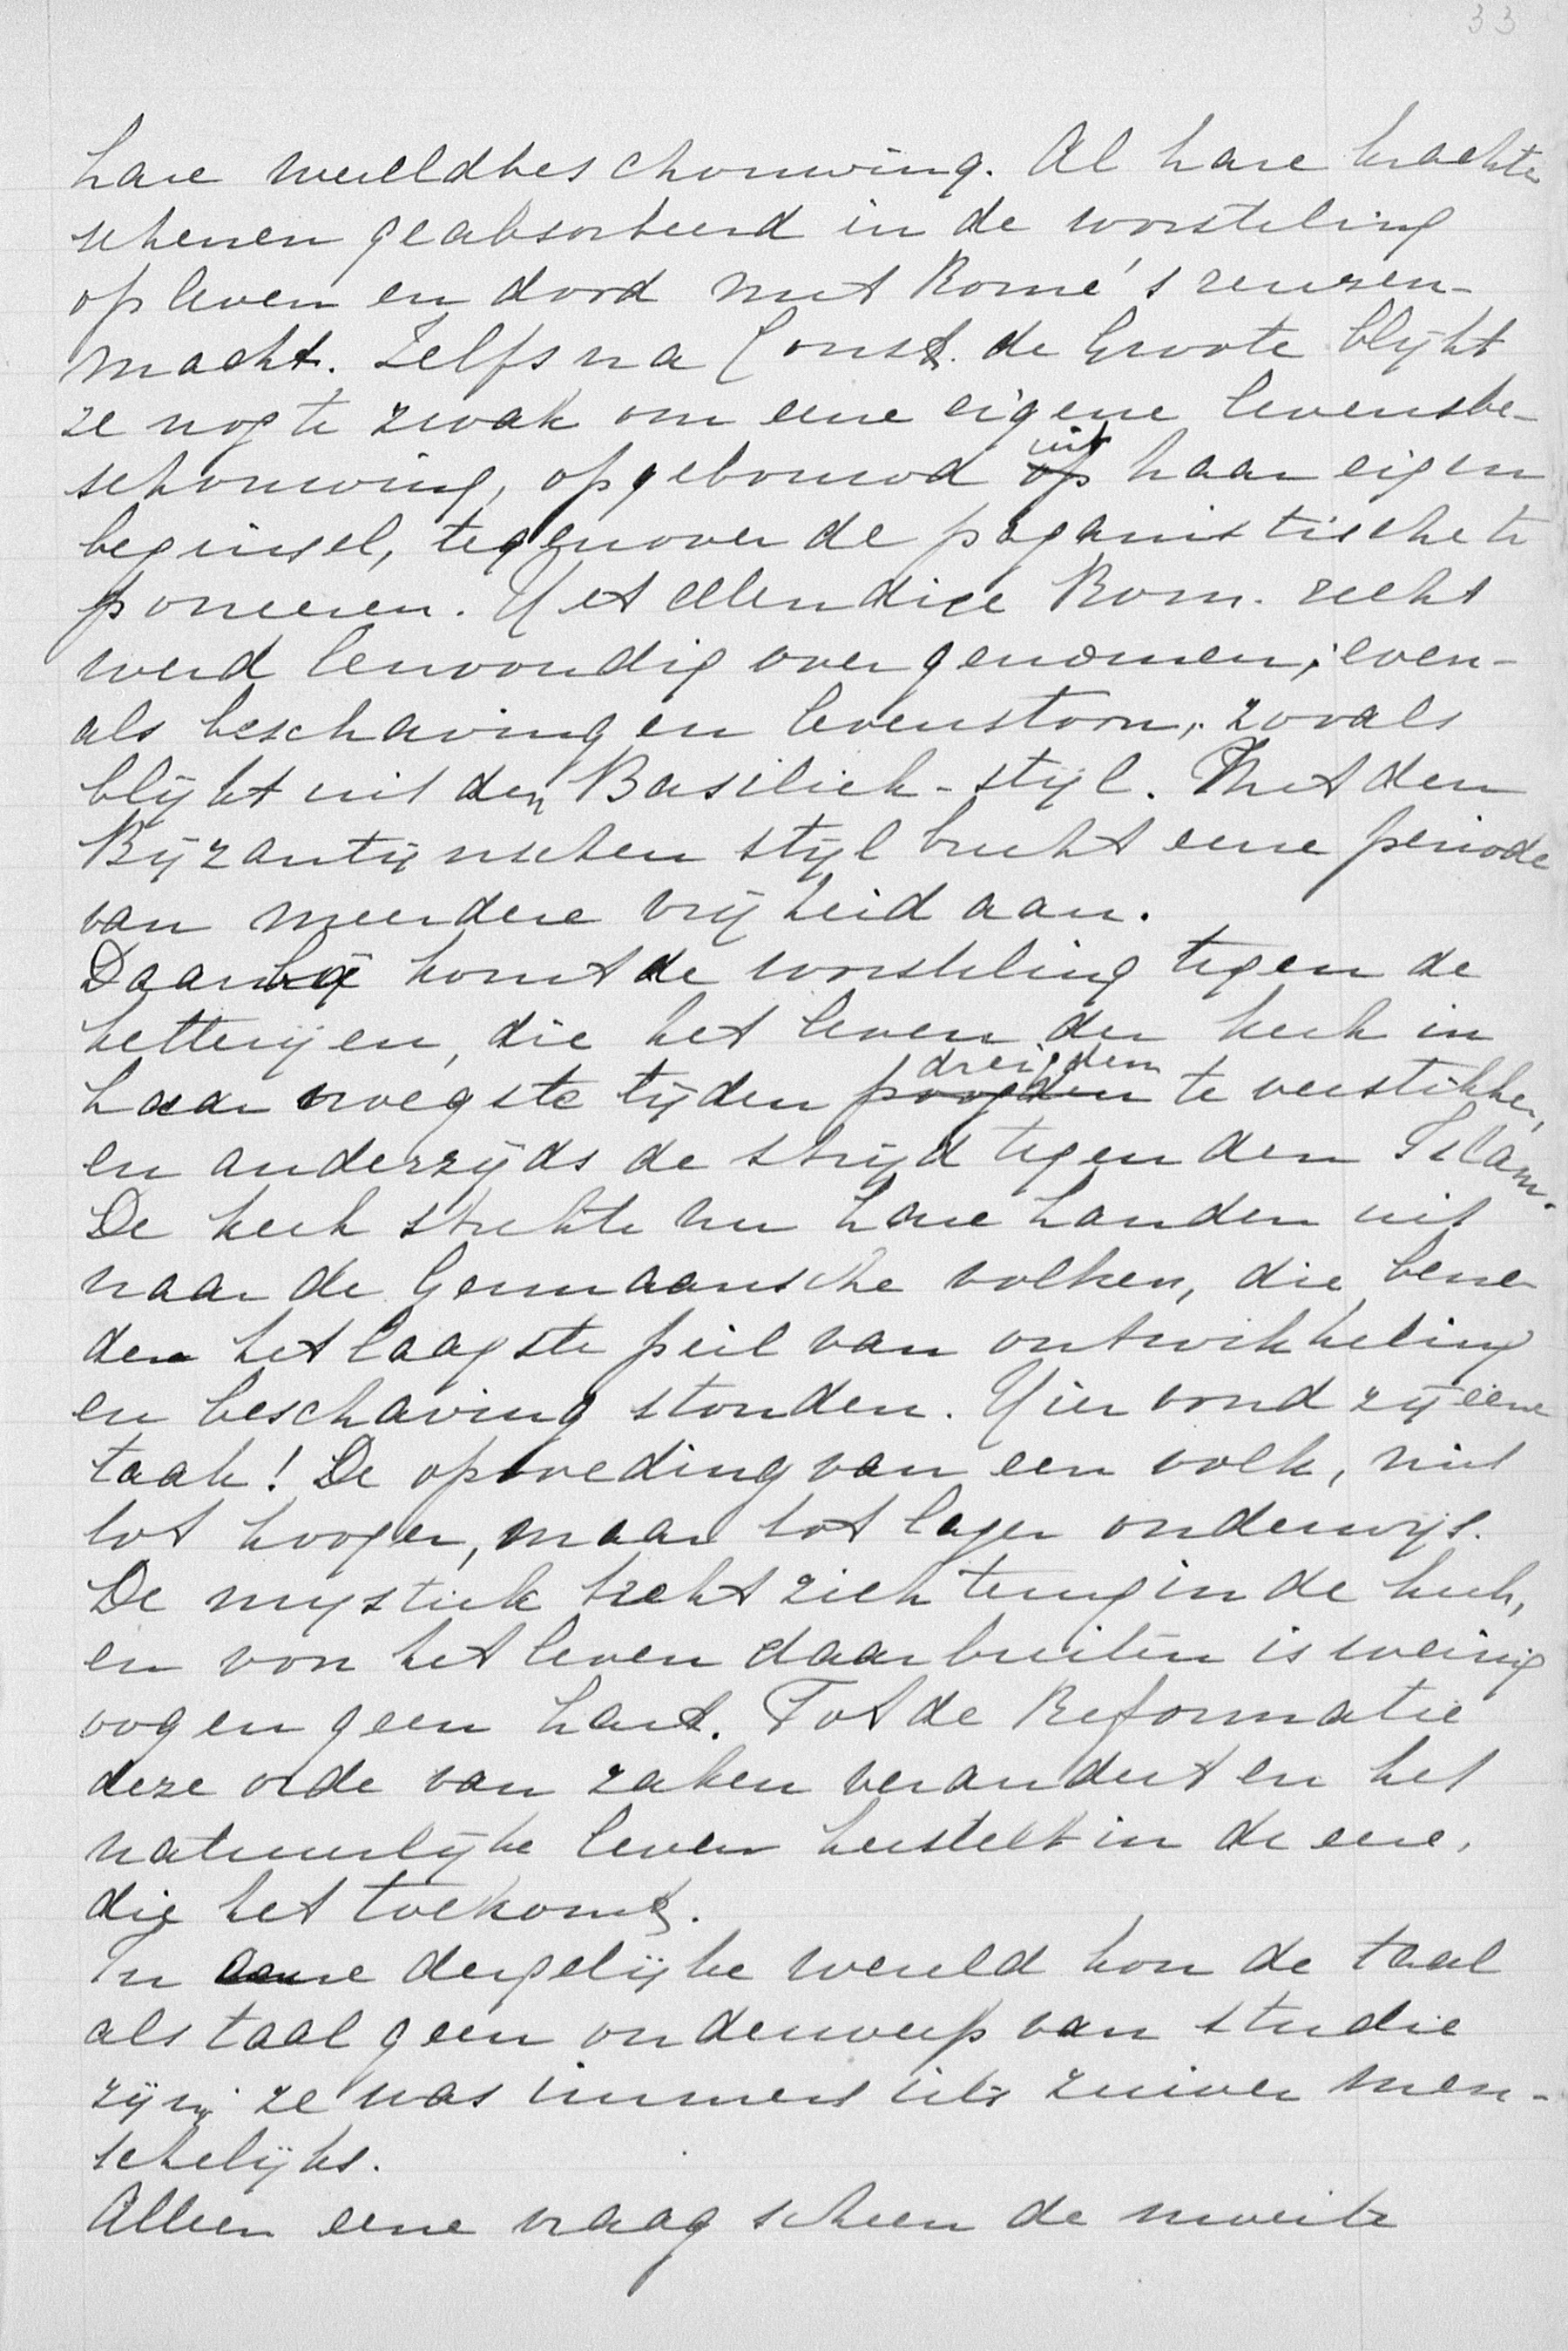 33
hare wereldbeschouwing. Al hare krachten
schenen geabsorbeerd in de worsteling
op leven en dood met Rome's reuzen-
macht. Zelfs na Const. de Groote blijkt
ze nog te zwak om eene eigene levensbe-
schouwing, opgebouwd uit haar eigen
beginsel, tegenover de paganistische te
poneeren. Het ellendige Rom. recht
werd eenvoudig overgenomen; even-
als beschaving en levenstoon; zooals
blijkt uit den Basiliek-stijl. Met den
Byzantijnschen stijl breekt eene periode
van meerdere vrijheid aan.
Daarbij komt de worsteling tegen de
ketterijen, die het leven der kerk in
haar vroegste tijden poogden dreigden te verstikken,
en anderzijds de strijd tegen den Islam.
De kerk strekte nu hare handen uit
naar de Germaansche volken, die bene
den het laagste peil van ontwikkeling
en beschaving stonden. Hier vond zij eene
taak! De opvoeding van een volk, niet
tot hooger, maar tot lager onderwijs.
De mystiek trekt zich terug in de kerk,
en voor het leven daarbuiten is weinig
oog en geen hart. Tot de Reformatie
deze orde van zaken verandert en het
natuurlijke leven herstelt in de eere,
die het toekomt.
In eene dergelijke wereld kon de taal
als taal geen onderwerp van studie
zijn; ze was immers iets zuiver men-
schelijks.
Alleen eene vraag scheen de moeite